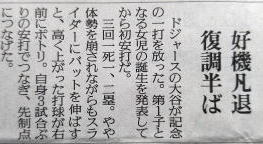 好機凡退
復調半ば
ドジャースの大谷が記念
の一打を放った。第1子と
なる女児の誕生を発表して
から初安打だ。
三回一死一、二塁。やや
体勢を崩されながらもスラ
イダーにバットを伸ばす
と、高く上がった打球が右
前にポトリ。自身3試合ぶ
りの安打でつなぎ、先制点
につなげた。